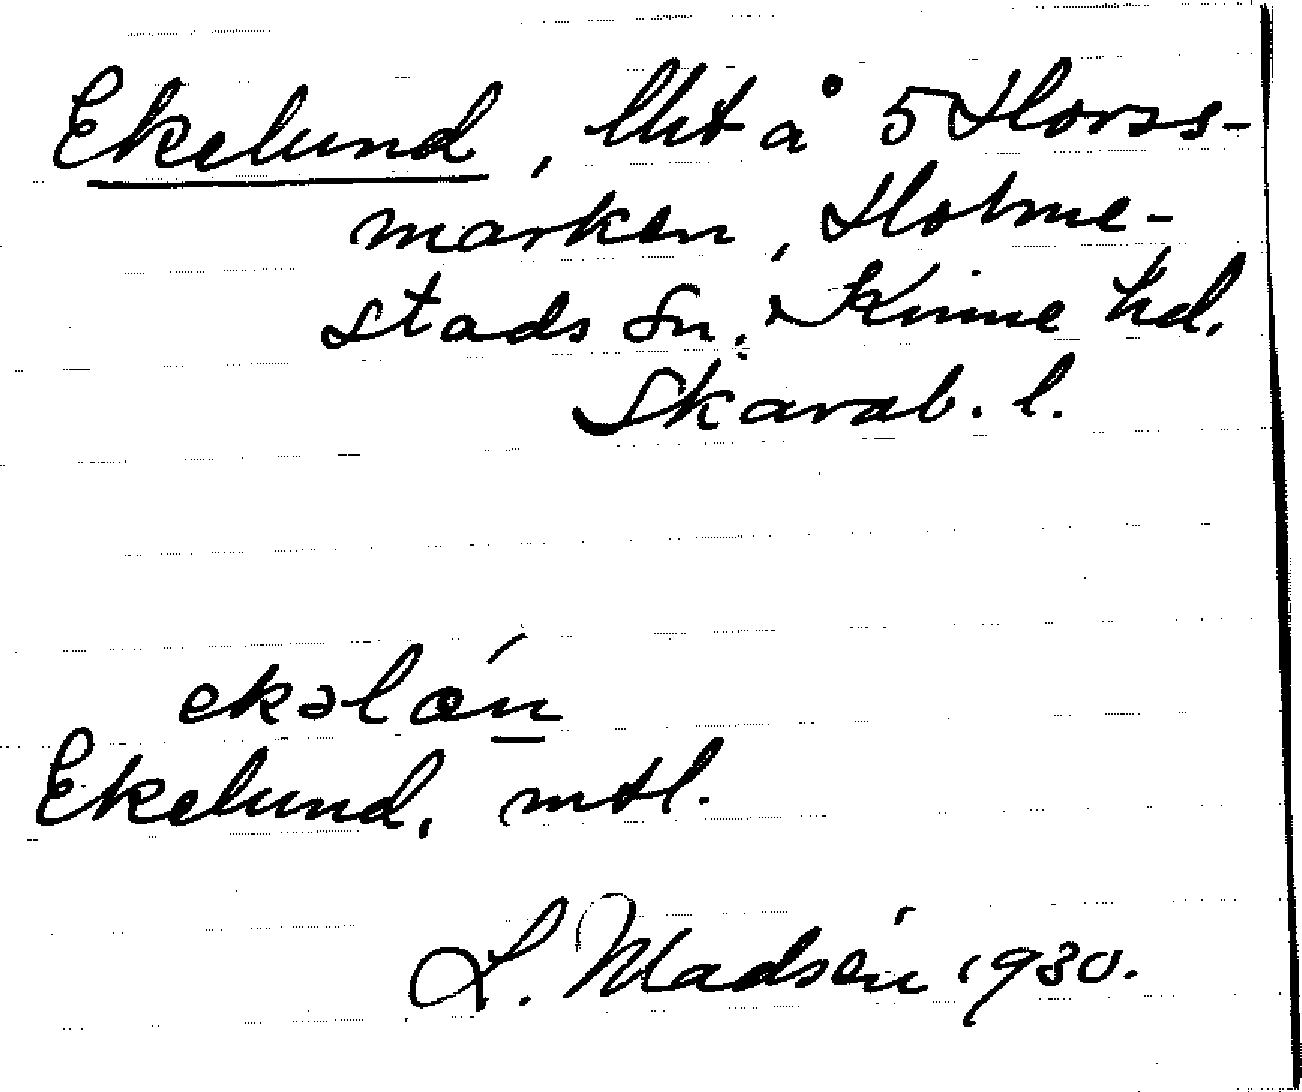 Ekelund, lht å 5 Horss-
marken, Holme-
stads sn, Kinne hd.
Skarab. l.
ekəlón
Ekelund, mtl.
L. Madsén 1930.